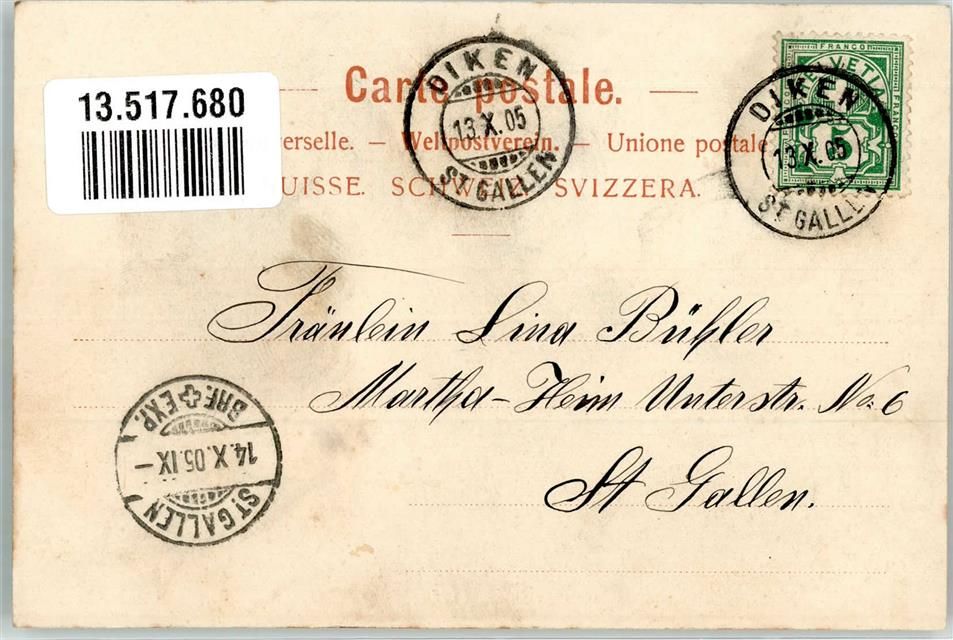 13.517.680
Carte postale.
erselle. — Weltpostverein. — Unione postale
UISSE. SCHWEIZ. SVIZZERA.
DIKEN
13.X.05
ST GALLEN
FRANCO
HELVETIA
5
DIKEN
13.X.05
ST GALLEN
Fräulein Lina Bühler
Martha-Heim Unterstr. No 6
St Gallen.
BRF. EXP.
14.X.05.IX-
ST. GALLEN